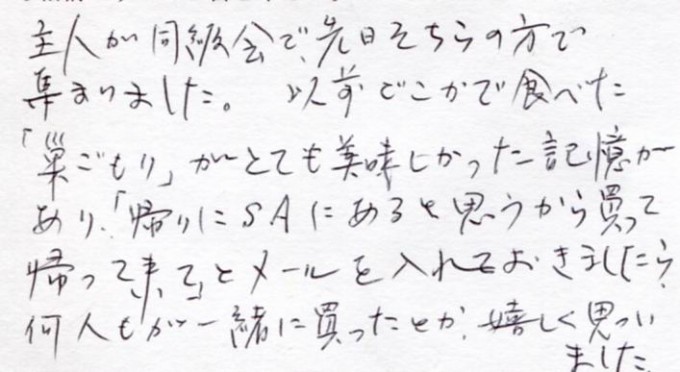 主人が同級会で、先日そちらの方で
集まりました。 以前どこかで食べた
「巣ごもり」がとても美味しかった記憶が
あり、「帰りにSAにあると思うから買って
帰って来て」とメールを入れておきましたら、
何人もが一緒に買ったとか、嬉しく思い
ました